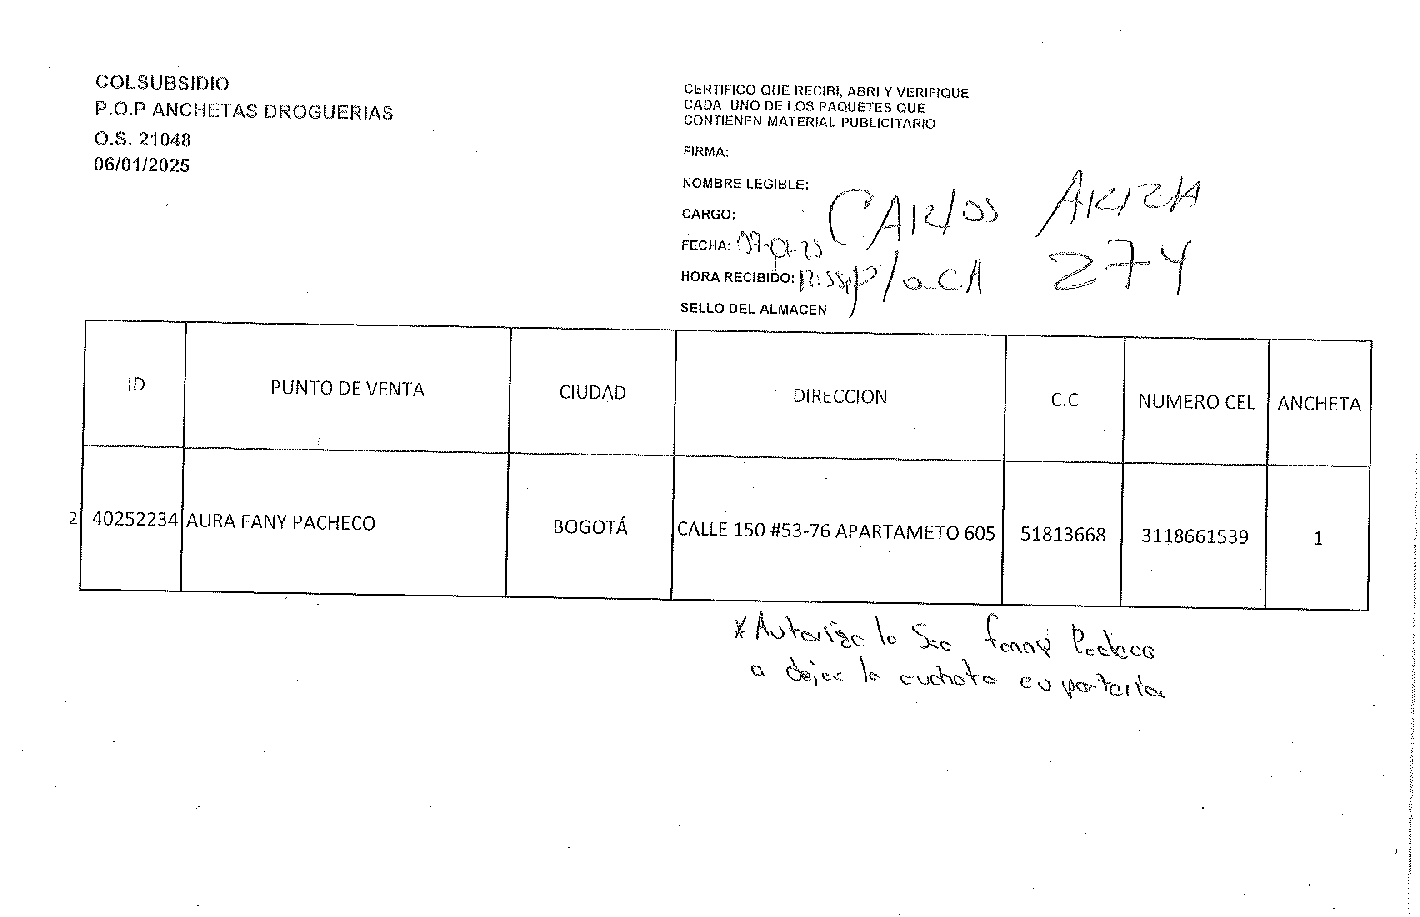 COLSUBSIDIO
P.O.P ANCHETAS DROGUERIAS
O.S. 21048
06/01/2025
CERTIFICO QUE RECIBI, ABRI Y VERIFIQUE
CADA UNO DE LOS PAQUETES QUE
CONTIENEN MATERIAL PUBLICITARIO
FIRMA:
NOMBRE LEGIBLE:
CARGO:
CARlos ARIZA
FECHA: 07-01-25
HORA RECIBIDO: 12:55p PlaCA 274
SELLO DEL ALMACEN
ID PUNTO DE VENTA CIUDAD DIRECCION C.C NUMERO CEL ANCHETA
2 40252234 AURA FANY PACHECO BOGOTÁ CALLE 150 #53-76 APARTAMETO 605 51813668 3118661539 1
* Autoriza la Sra Fanny Pacheco
a dejar la ancheta en porteria